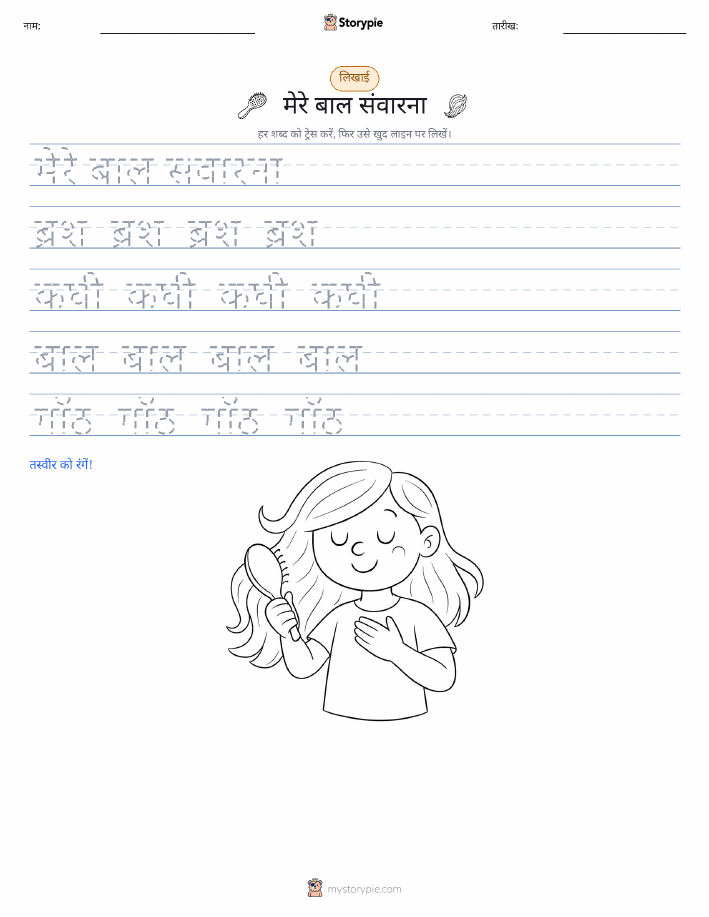 नाम:
Storypie
तारीख:
लिखाई
मेरे बाल संवारना
हर शब्द को ट्रेस करें, फिर उसे खुद लाइन पर लिखें।
मेरे बाल सवारना
ब्रश ब्रश ब्रश ब्रश
कघी कघी कघी कघी
बाल बाल बाल बाल
गॉठ गॉठ गॉठ गॉठ
तस्वीर को रंगें!
mystorypie.com